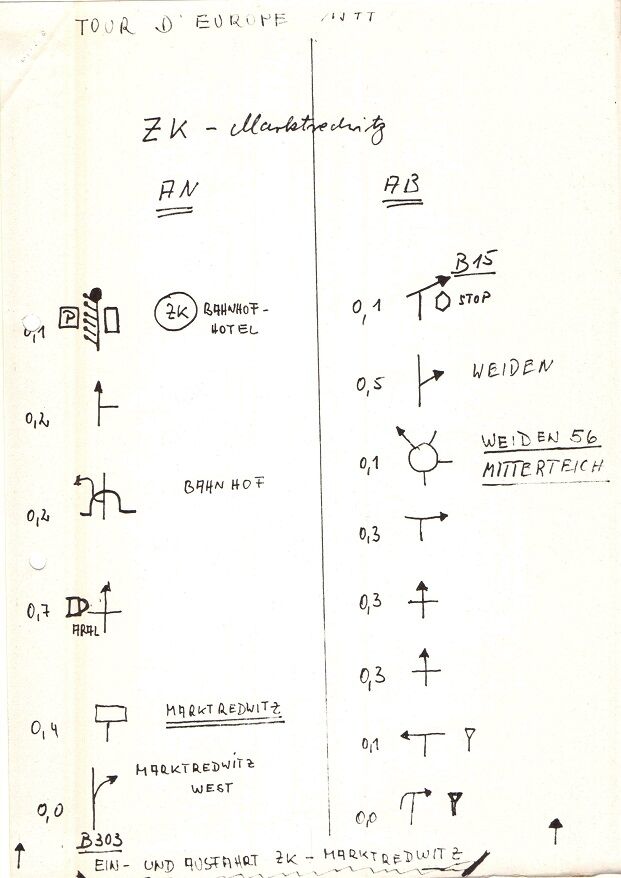 TOUR D'EUROPE
ZK - Marktredwitz
AN
AB
P
ZK BAHNHOF-
HOTEL
0,1
0,2
BAHNHOF
0,2
0,7
ARAL
0,4
MARKTREDWITZ
MARKTREDWITZ
WEST
0,0
B303
B15
0,1
STOP
0,5
WEIDEN
0,1
WEIDEN 56
MITTERTEICH
0,3
0,3
0,3
0,1
0,0
EIN- UND AUSFAHRT ZK - MARKTREDWITZ